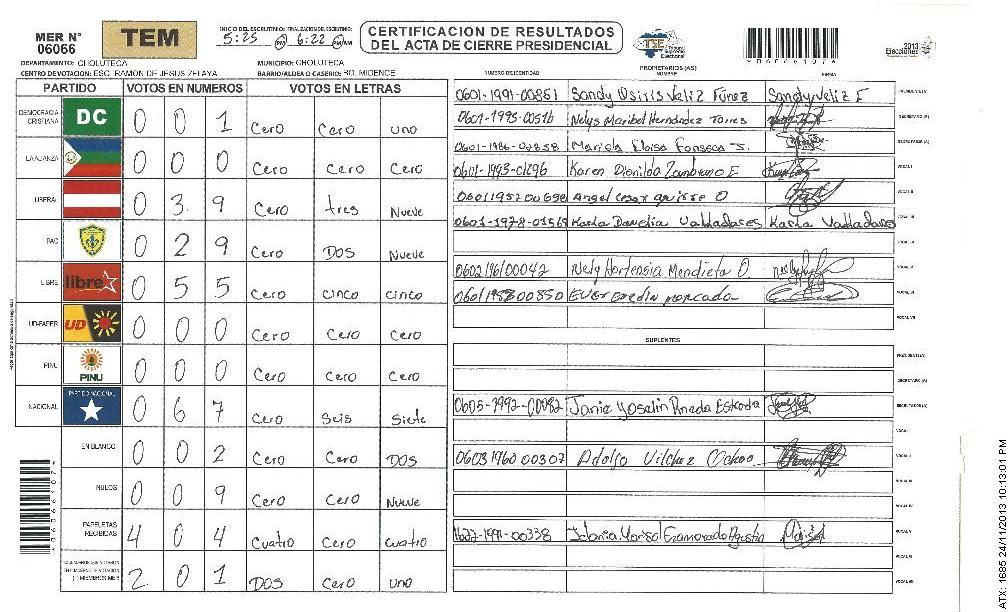 MER N° 06066
TEM
INICIO DEL ESCRUTINIO: FINALIZACION DEL ESCRUTINIO:
5:25 PM 6:22 PM AM
CERTIFICACION DE RESULTADOS
DEL ACTA DE CIERRE PRESIDENCIAL
TSE
Tribunal Supremo Electoral
2013
Elecciones
DEPARTAMENTO: CHOLUTECA
MUNICIPIO: CHOLUTECA
CENTRO DE VOTACION: ESC. RAMON DE JESUS ZELAYA
BARRIO/ALDEA O CASERIO: BO. MIDENCE
PARTIDO VOTOS EN NUMEROS VOTOS EN LETRAS
DEMOCRACIA CRISTIANA DC 0 0 1 Cero Cero uno
LA ALIANZA 0 0 0 Cero Cero Cero
LIBERAL 0 3 9 Cero tres Nueve
PAC 0 2 9 Cero DOS Nueve
LIBRE libre 0 5 5 Cero cinco cinco
UD-FAPER UD 0 0 0 Cero Cero Cero
PINU PINU 0 0 0 Cero Cero Cero
NACIONAL PARTIDO NACIONAL 0 6 7 Cero Seis Siete
EN BLANCO 0 0 2 Cero Cero DOS
NULOS 0 0 9 Cero Cero Nueve
PAPELETAS RECIBIDAS 4 0 4 Cuatro Cero cuatro
2 0 1 DOS Cero uno
NUMERO DE IDENTIDAD PROPIETARIOS (AS) NOMBRE FIRMA
0601-1991-00851 Sandy Osiris Veliz Fúnez Sandy Veliz F PRESIDENTE(A)
Nelys Maribel Hernández Torres SECRETARIO (A)
0601-1986-02858 Mariela Eloisa Fonseca S.
Karen Dionilda Zambrano E VOCAL I
Angel cesar aguirre O VOCAL II
0601-1978-01569 Karla Danelia Valladares Karla Valladares VOCAL III
Nely Hortensia Mendieta O. VOCAL V
Ever eredin mercado VOCAL VI
VOCAL VII
SUPLENTES
PRESIDENTE(A)
SECRETARIO (A)
0605-1992-00082 Janie Yoselin Pineda Estrada
VOCAL I
0603 1960 00307 Adolfo Vilchez Ochoa VOCAL II
VOCAL III
VOCAL IV
Idania Marisol Enamorado Agustin Marisol VOCAL V
VOCAL VI
VOCAL VII
ATX: 1685 24/11/2013 10:13:01 PM